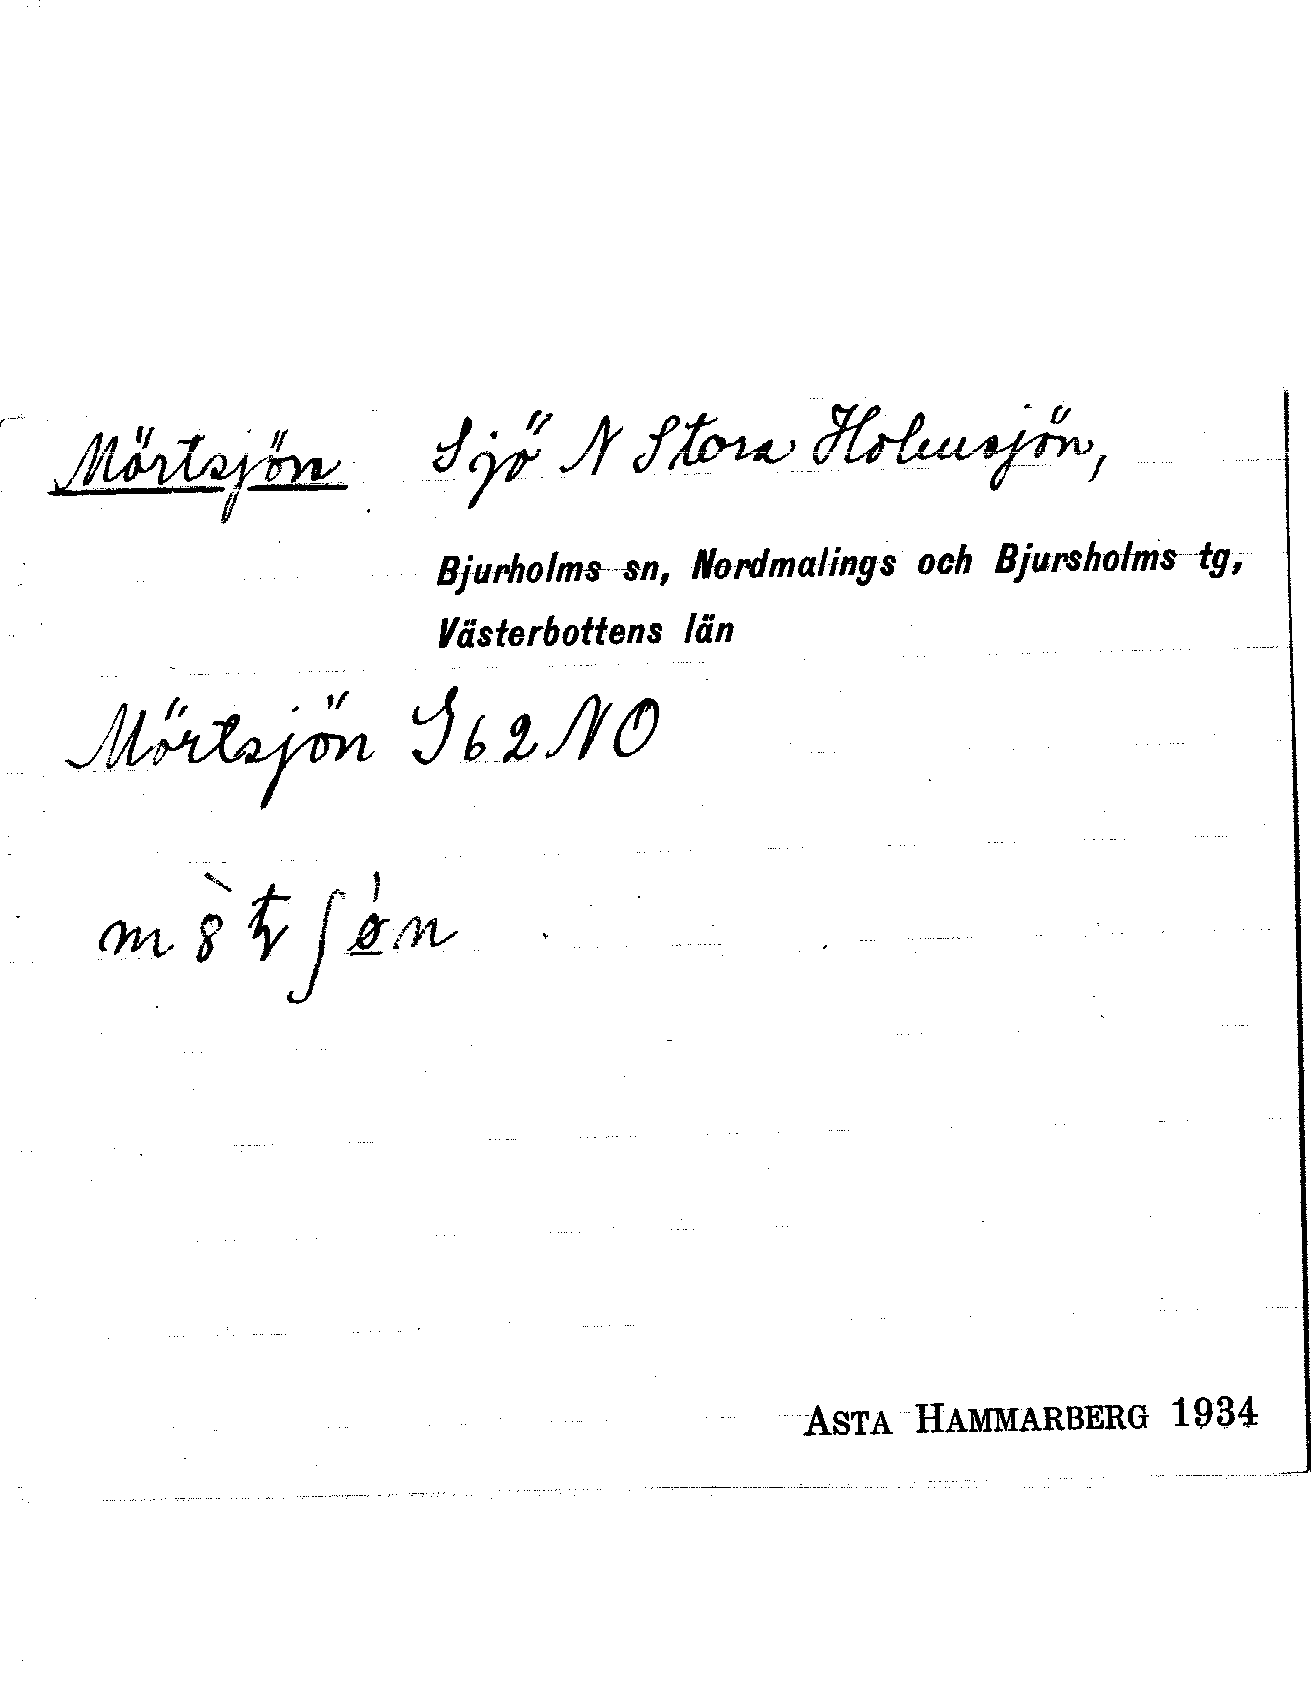 Mörtsjön Sjö N Stora Holmsjön,
Bjurholms sn, Nordmalings och Bjursholms tg,
Västerbottens län
Mörtsjön G62NO
ASTA HAMMARBERG 1934